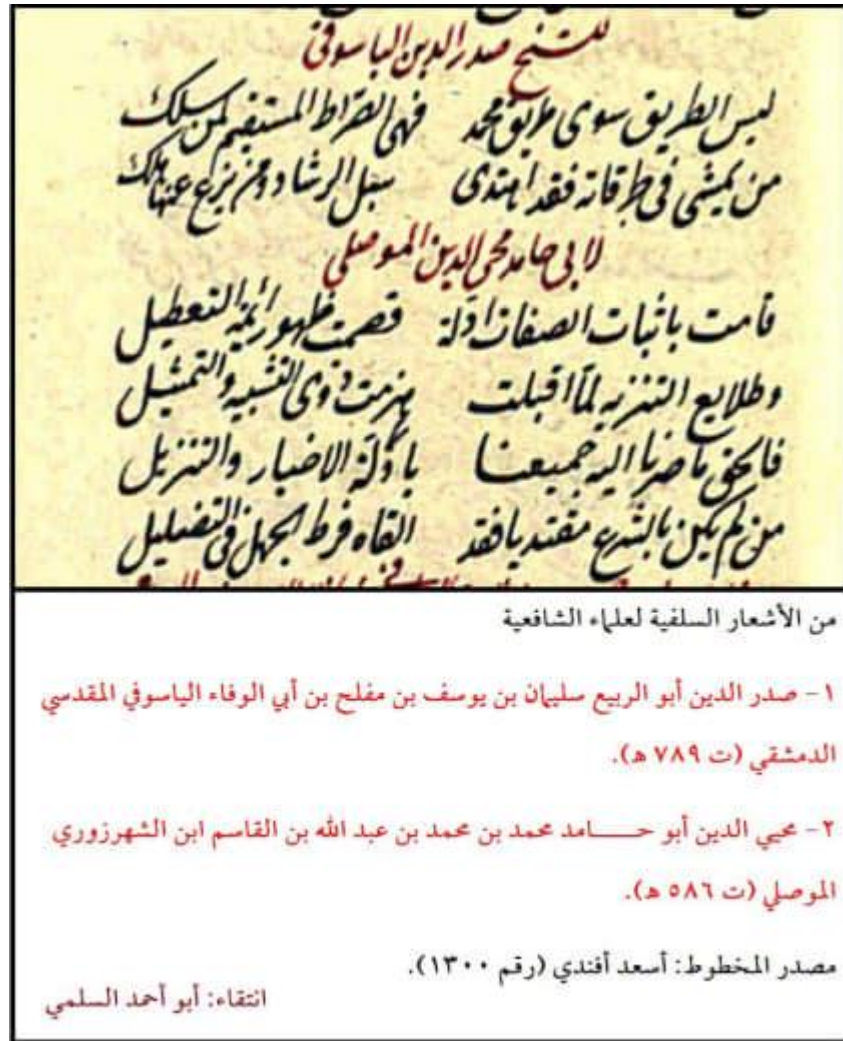 للشيخ صدر الدين الياسوفي
ليس الطريق سوى طريق محمد فهي الصراط المستقيم لمن سلك
من يمشي في طرقاته فقد اهتدى سبل الرشاد ومن يزغ عنها هلك
لابي حامد محي الدين الموصلي
قامت باثبات الصفات ادلة قصمت ظهور ائمة التعطيل
وطلايع التنزيه لما اقبلت هزمت ذوي التشبيه والتمثيل
فالحق ما صرنا اليه جميعنا بادلة الاخبار والتنزيل
من لم يكن بالشرع مقتديا فقد القاه فرط الجهل في التضليل
من الأشعار السلفية لعلماء الشافعية
١- صدر الدين أبو الربيع سليمان بن يوسف بن مفلح بن أبي الوفاء الياسوفي المقدسي
الدمشقي (ت ٧٨٩ هـ).
٢- محيي الدين أبو حـــامد محمد بن محمد بن عبد الله بن القاسم ابن الشهرزوري
الموصلي (ت ٥٨٦ هـ).
مصدر المخطوط: أسعد أفندي (رقم ١٣٠٠).
انتقاء: أبو أحمد السلمي